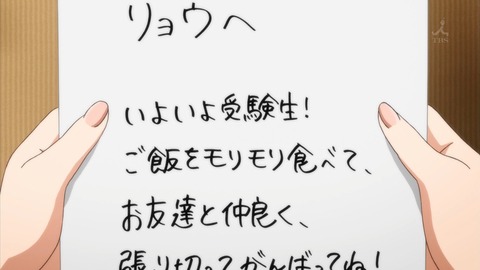 TBS
リョウへ
いよいよ受験生!
ご飯をモリモリ食べて、
お友達と仲良く、
張り切ってがんばってね!